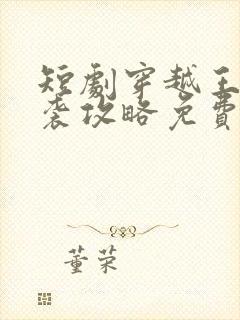 短劇穿越王
袭攻略免費
董荣